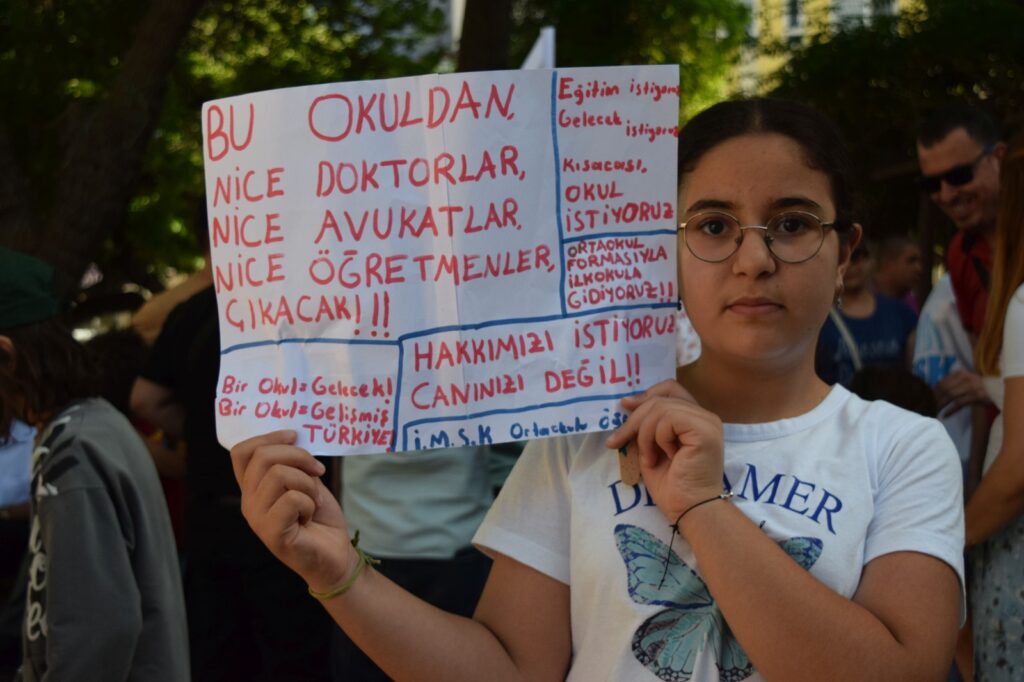 BU OKULDAN,
NİCE DOKTORLAR,
NİCE AVUKATLAR,
NİCE ÖĞRETMENLER,
ÇIKACAK!!!
Eğitim istiyoruz
Gelecek istiyoruz
Kısacası,
OKUL
İSTİYORUZ
ORTAOKUL
FORMASIYLA
İLKOKULA
GİDİYORUZ!!
Bir Okul=Gelecek!
Bir Okul=Gelişmiş
TÜRKİYE!
HAKKIMIZI İSTİYORUZ
CANINIZI DEĞİL!!
İ.M.S.K Ortaokulu